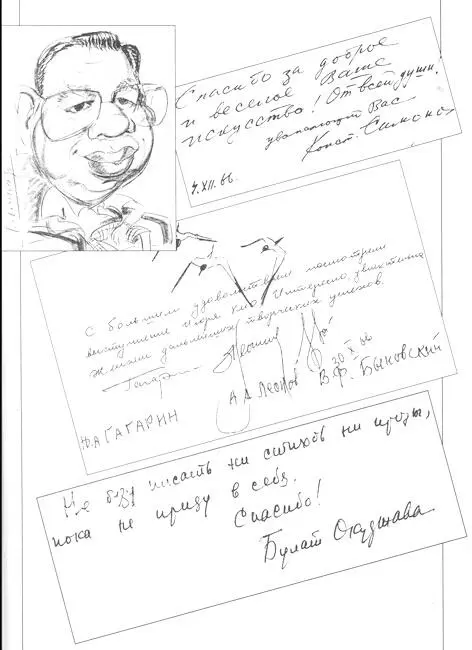 Спасибо за доброе
и веселое Ваше
искусство! От всей души!
уважающий Вас
Конст. Симонов
7.XII.66.
С большим удовольствием посмотрели
выступление Игоря Кио. Интересно, увлекательно
Желаем дальнейших творческих успехов.
Гагарин
Леонов
20 XI 66
Ю.А ГАГАРИН
А А Леонов
В.Ф. Быковский
Не буду писать ни стихов ни прозы,
пока не приду в себя.
Спасибо!
Булат Окуджава